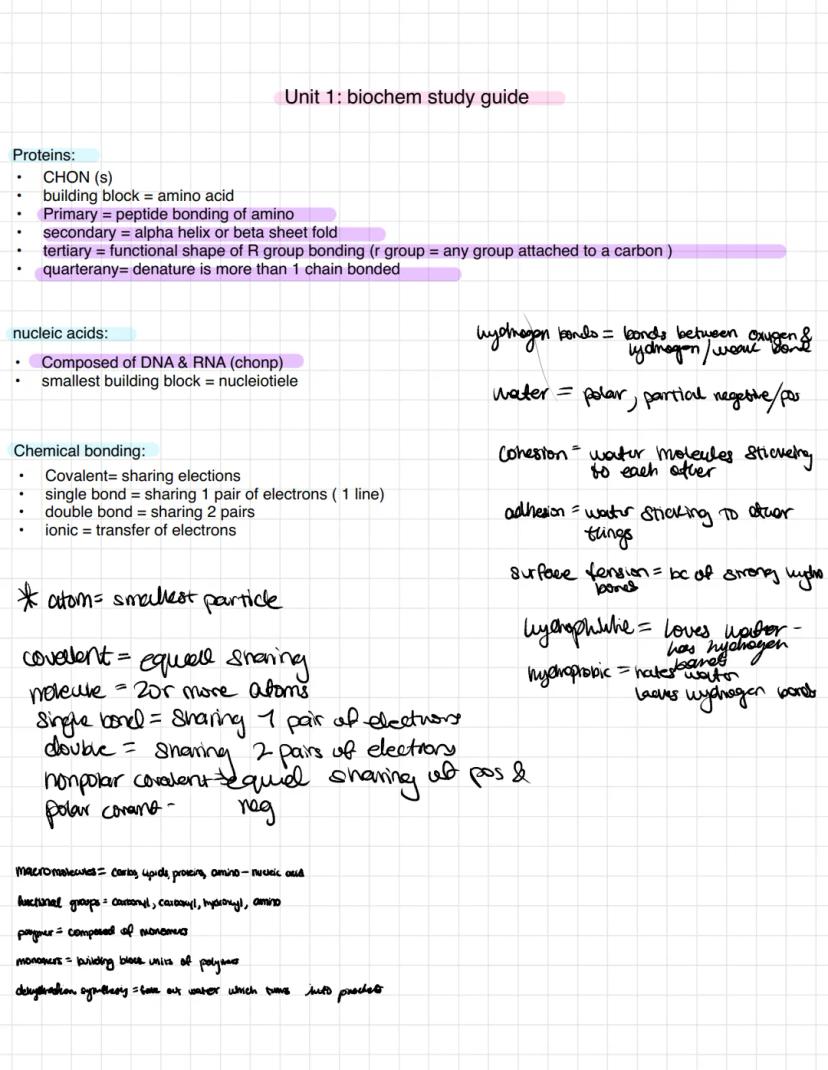 Unit 1: biochem study guide
Proteins:
• CHON (s)
• building block = amino acid
• Primary = peptide bonding of amino
• secondary = alpha helix or beta sheet fold
• tertiary = functional shape of R group bonding (r group = any group attached to a carbon )
• quarterany= denature is more than 1 chain bonded
nucleic acids:
• Composed of DNA & RNA (chonp)
• smallest building block = nucleiotiele
Chemical bonding:
• Covalent= sharing elections
• single bond = sharing 1 pair of electrons ( 1 line)
• double bond = sharing 2 pairs
• ionic = transfer of electrons
hydrogen bonds = bonds between oxygen &
hydrogen/weak bond
water = polar, partial negative/pos
Cohesion = water molecules sticking
to each other
adhesion = water sticking to other
things
surface tension = bc of strong hydro
bonds
hydrophilic = loves water -
has hydrogen
bonds
hydroprobic = hates water
lacks hydrogen bonds
* atom= smallest particle
covalent = equal sharing
molecule = 2 or more atoms
single bond = sharing 1 pair of electrons
double = sharing 2 pairs of electrons
nonpolar covalent = equal sharing of pos &
neg
polar -
macromolecules = carbs, lipids, proteins, amino - nucleic acid
functional groups = carbonyl, carboxyl, hydroxyl, amino
polymer = composed of monomers
monomers = building block units of polymers
dehydration synthesis = take out water which turns into product